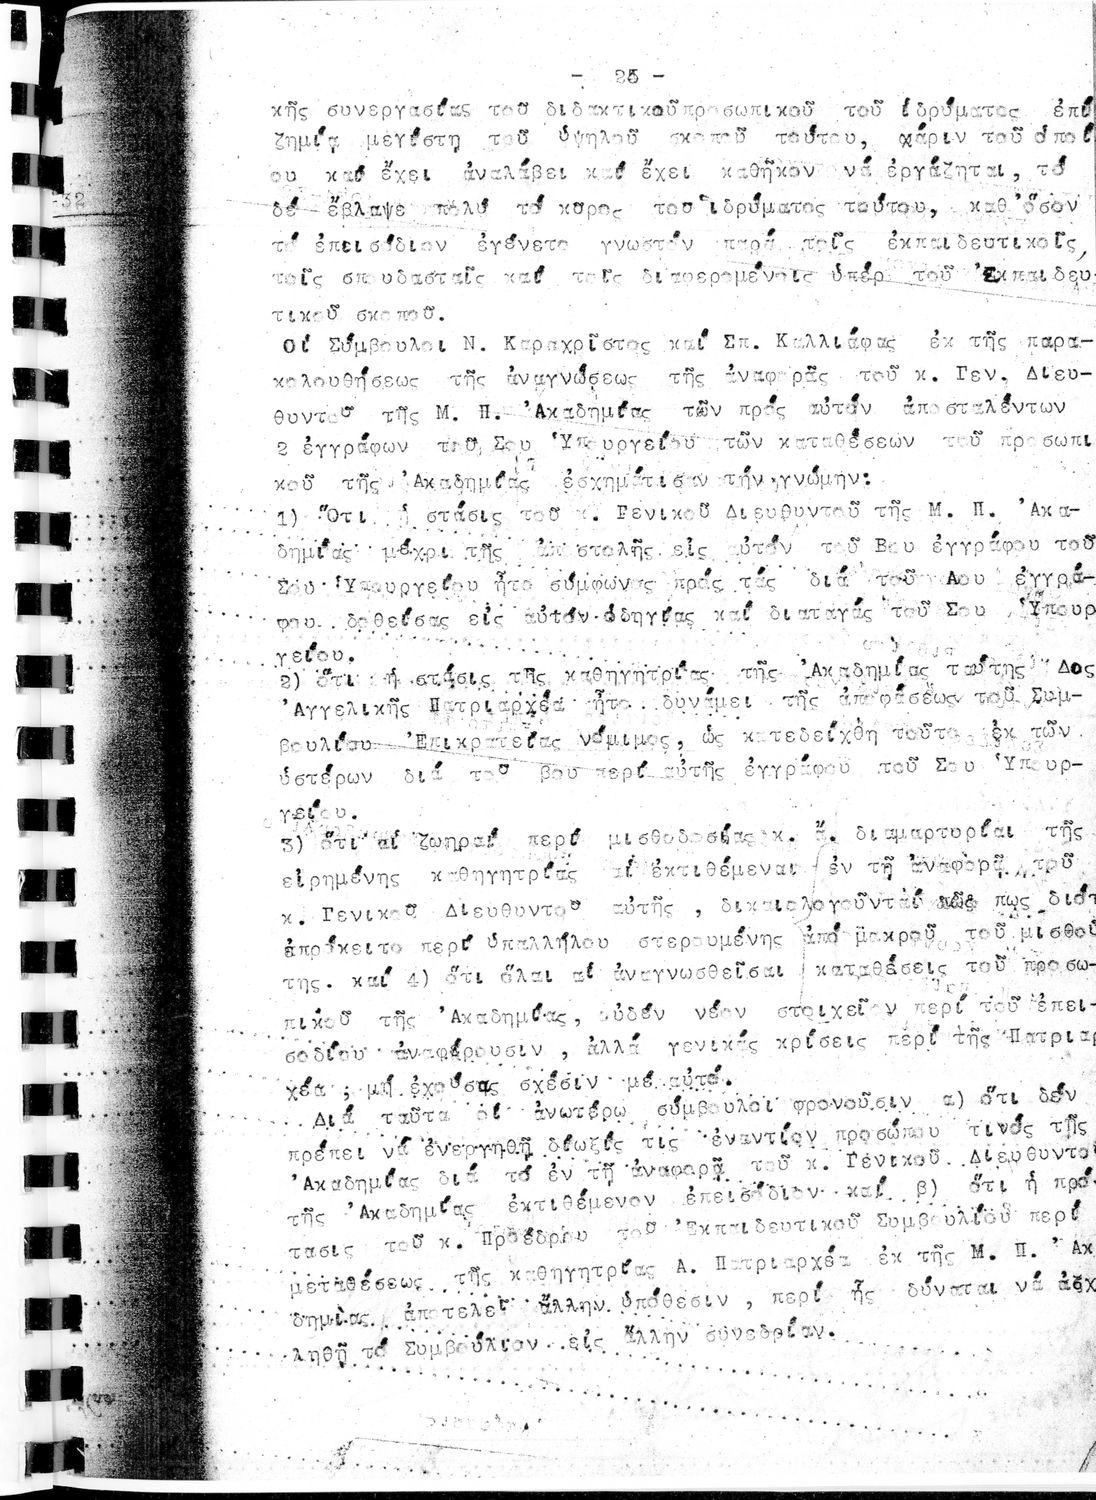 - 25 -
κῆς συνεργασίας τοῦ διδακτικοῦπροσωπικοῦ τοῦ ἱδρύματος ἐπί
ζημίᾳ μεγίστῃ τοῦ ὑψηλοῦ σκοποῦ τούτου, χάριν τοῦ ὁποί
ου καί ἔχει ἀναλάβει καί ἔχει καθῆκον νά ἐργάζηται, τό
-32
δέ ἔβλαψε πολύ τό κῦρος τοῦ ἱδρύματος τούτου, καθ' ὅσον
τό ἐπεισόδιον ἐγένετο γνωστόν παρά τοῖς ἐκπαιδευτικοῖς,
τοῖς σπουδασταῖς καί τοῖς διαφερομένοις ὑπέρ τοῦ 'Εκπαιδευ-
τικοῦ σκοποῦ.
Οἱ Σύμβουλοι Ν. Καραχρῖστος καί Σπ. Καλλιάφας ἐκ τῆς παρα-
κολουθήσεως τῆς ἀναγνώσεως τῆς ἀναφορᾶς τοῦ κ. Γεν. Διευ-
θυντοῦ τῆς Μ. Π. 'Ακαδημίας τῶν πρός αὐτόν ἀποσταλέντων
2 ἐγγράφων τοῦ Σου 'Υπουργείου τῶν καταθέσεων τοῦ προσωπι
κοῦ τῆς 'Ακαδημίας ἐσχημάτισαν τήν γνώμην:
1) Ὅτι ἡ στάσις τοῦ κ. Γενικοῦ Διευθυντοῦ τῆς Μ. Π. 'Ακα-
δημίας μέχρι τῆς ἀποστολῆς εἰς αὐτόν τοῦ Βου ἐγγράφου τοῦ
Σου 'Υπουργείου ἦτο σύμφωνος πρός τάς διά τοῦ Αου ἐγγρά-
φου δοθείσας εἰς αὐτόν ὁδηγίας καί διαταγάς τοῦ Σου 'Υπουρ
γείου.
2) ὅτι ἡ στάσις τῆς καθηγητρίας τῆς 'Ακαδημίας ταύτης Δος
'Αγγελικῆς Πατριαρχέα ἦτο δυνάμει τῆς ἀποφάσεως τοῦ Συμ-
βουλίου 'Επικρατείας νόμιμος, ὡς κατεδείχθη τοῦτο ἐκ τῶν
ὑστέρων διά τοῦ βου περί αὐτῆς ἐγγράφου τοῦ Σου 'Υπουρ-
γείου.
3) ὅτι αἱ ζωηραί περί μισθοδοσίας κ. ἄ. διαμαρτυρίαι τῆς
εἰρημένης καθηγητρίας αἱ ἐκτιθέμεναι ἐν τῇ ἀναφορᾷ τοῦ
κ. Γενικοῦ Διευθυντοῦ αὐτῆς , δικαιολογοῦνται πως διότ
ἐπρόκειτο περί ὑπαλλήλου στερουμένης ἀπό μακροῦ τοῦ μισθοῦ
της. καί 4) ὅτι ὅλαι αἱ ἀναγνωσθεῖσαι καταθέσεις τοῦ προσω-
πικοῦ τῆς 'Ακαδημίας, οὐδέν νέον στοιχεῖον περί τοῦ ἐπει-
σοδίου ἀναφέρουσιν , ἀλλά γενικάς κρίσεις περί τῆς Πατριαρ
χέα , μή ἐχούσας σχέσιν μέ αὐτό.
Διά ταῦτα οἱ ἀνωτέρω σύμβουλοι φρονοῦσιν α) ὅτι δέν
πρέπει νά ἐνεργηθῇ δίωξίς τις ἐναντίον προσώπου τινός τῆς
'Ακαδημίας διά τό ἐν τῇ ἀναφορᾷ τοῦ κ. Γενικοῦ Διευθυντοῦ
τῆς 'Ακαδημίας ἐκτιθέμενον ἐπεισόδιον καί β) ὅτι ἡ πρό-
τασις τοῦ κ. Προέδρου τοῦ 'Εκπαιδευτικοῦ Συμβουλίου περί
μεταθέσεως τῆς καθηγητρίας Α. Πατριαρχέα ἐκ τῆς Μ. Π. 'Ακ
δημίας ἀποτελεῖ ἄλλην ὑπόθεσιν , περί ἧς δύναται νά ἀσχ
ληθῇ τό Συμβούλιον εἰς ἄλλην συνεδρίαν.